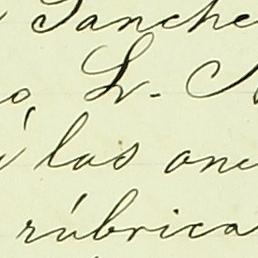 Sanche
o, L. 
á las onc
rúbrica